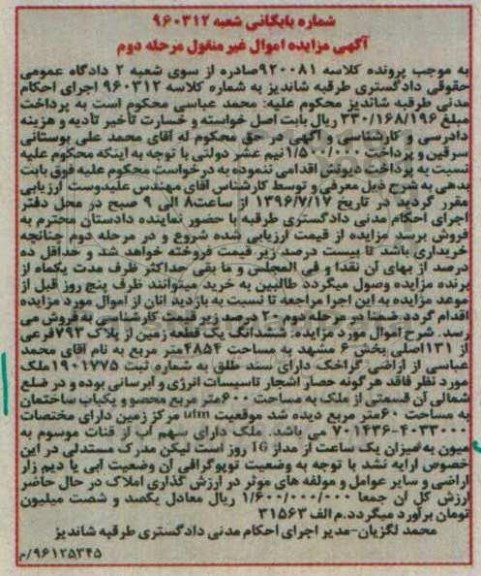 شماره بایگانی شعبه ۹۶۰۳۱۲
آگهی مزایده اموال غیر منقول مرحله دوم
به موجب پرونده کلاسه ۹۲۰۰۸۱صادره از سوی شعبه ۲ دادگاه عمومی
حقوقی دادگستری طرقبه شاندیز به شماره کلاسه ۹۶۰۳۱۲ اجرای احکام
مدنی طرقبه شاندیز محکوم علیه: محمد عباسی محکوم است به پرداخت
مبلغ ۳۳۰/۱۶۸/۱۹۶ ریال بابت اصل خواسته و خسارت تأخیر تادیه و هزینه
دادرسی و کارشناسی و آگهی در حق محکوم له آقای محمد علی بوستانی
سرقین و پرداخت ۱/۵۰۰/۰۰۰ نیم عشر دولتی با توجه به اینکه محکوم علیه
نسبت به پرداخت دیونش اقدامی ننموده به درخواست محکوم علیه فوق بابت
بدهی به شرح ذیل معرفی و توسط کارشناس آقای مهندس علیدوست ارزیابی
مقرر گردید در تاریخ ۱۳۹۶/۷/۱۷ از ساعت۸ الی ۹ صبح در محل دفتر
اجرای احکام مدنی دادگستری طرقبه با حضور نماینده دادستان محترم به
فروش برسد مزایده از قیمت ارزیابی شده شروع و در مرحله دوم چنانچه
خریداری باشد تا بیست درصد زیر قیمت فروخته خواهد شد و حداقل ده
درصد از بهای آن نقدا و فی المجلس و ما بقی حداکثر ظرف مدت یکماه از
برنده مزایده وصول میگردد طالبین به خرید میتوانند ظرف پنج روز قبل از
موعد مزایده به این اجرا مراجعه تا نسبت به بازدید انان از اموال مورد مزایده
اقدام گردد ضمنا در مرحله دوم ۲۰ درصد زیر قیمت کارشناسی به فروش می
رسد. شرح اموال مورد مزایده: ششدانگ یک قطعه زمین از پلاک ۷۹۳فرعی
از ۱۳۱اصلی بخش ۶ مشهد به مساحت ۴۸۵۴متر مربع به نام آقای محمد
عباسی از اراضی گراخک دارای سند طلق به شماره ثبت ۱۹۰۱۷۷۵ملک
مورد نظر فاقد هرگونه حصار اشجار تاسیسات انرژی و ابرسانی بوده و در ضلع
شمالی آن قسمتی از ملک به مساحت ۶۰۰متر مربع محصور و یکباب ساختمان
به مساحت ۶۰متر مربع دیده شد موقعیت utm مرکز زمین دارای مختصات
۷۰۱۴۳۶-۴۰۳۳۰۰۰ می باشد. ملک دارای سهم آب از قنات موسوم به
میون به میزان یک ساعت از مدار 16 روز است لیکن مدرک مستدلی در این
خصوص ارایه نشد با توجه به وضعیت توپوگرافی آن وضعیت آبی یا دیم زار
اراضی و سایر عوامل و مولفه های موثر در ارزش گذاری املاک در حال حاضر
ارزش کل آن جمعا ۱/۶۰۰/۰۰۰/۰۰۰ ریال معادل یکصد و شصت میلیون
تومان برآورد میگردد.م الف ۳۱۵۶۳
محمد لگزیان-مدیر اجرای احکام مدنی دادگستری طرقبه شاندیز
۹۶۱۲۵۳۴۵/م